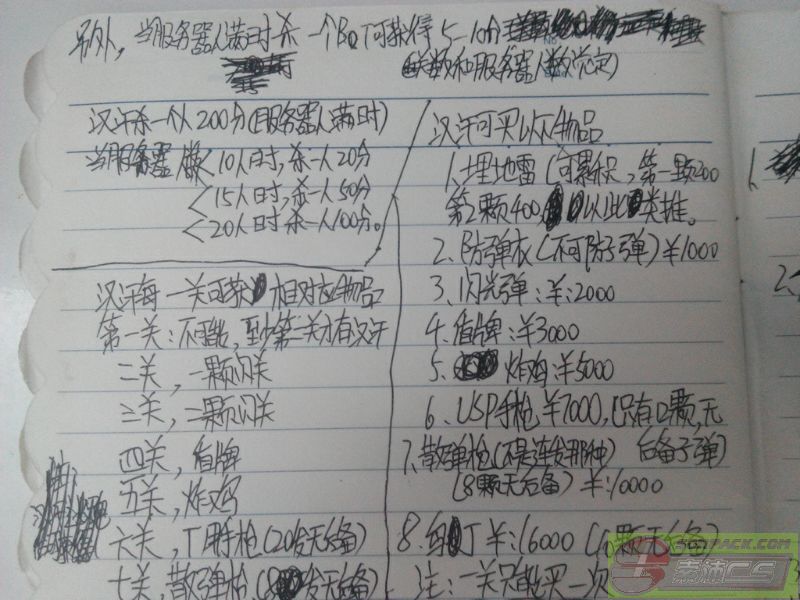 另外，当服务器人满时杀一个BOT可获得5-10分
(关数和服务器人数党定)
汉奸杀一个人200分(服务器人满时)
当服务器人数<10人时，杀一人20分
<15人时，杀一人50分
<20人时 杀一人100分。
汉奸每一关可获相对应物品
第一关：不可能，至少第二关才有汉奸
二关，一颗闪关
三关，二颗闪关
四关，盾牌
五关，炸鸡
六关，丁用手枪(20发无后备)
七关，散弹枪(8发无后备)
汉奸可买以下物品
1、埋地雷(可累积，第一颗200
第2颗400，以此类推。
2、防弹衣(不可防子弹)￥1000
3、闪光弹：￥:2000
4、盾牌：￥3000
5、炸鸡：￥5000
6、USP手枪￥7000，(只有12颗，无
后备子弹)
7、散弹枪(不是连发那种)
(8颗无后备)￥:10000
8、
丁￥:16000
颗无后备)
注：一关只能买一次
1、
2、
PACK.COM
CS